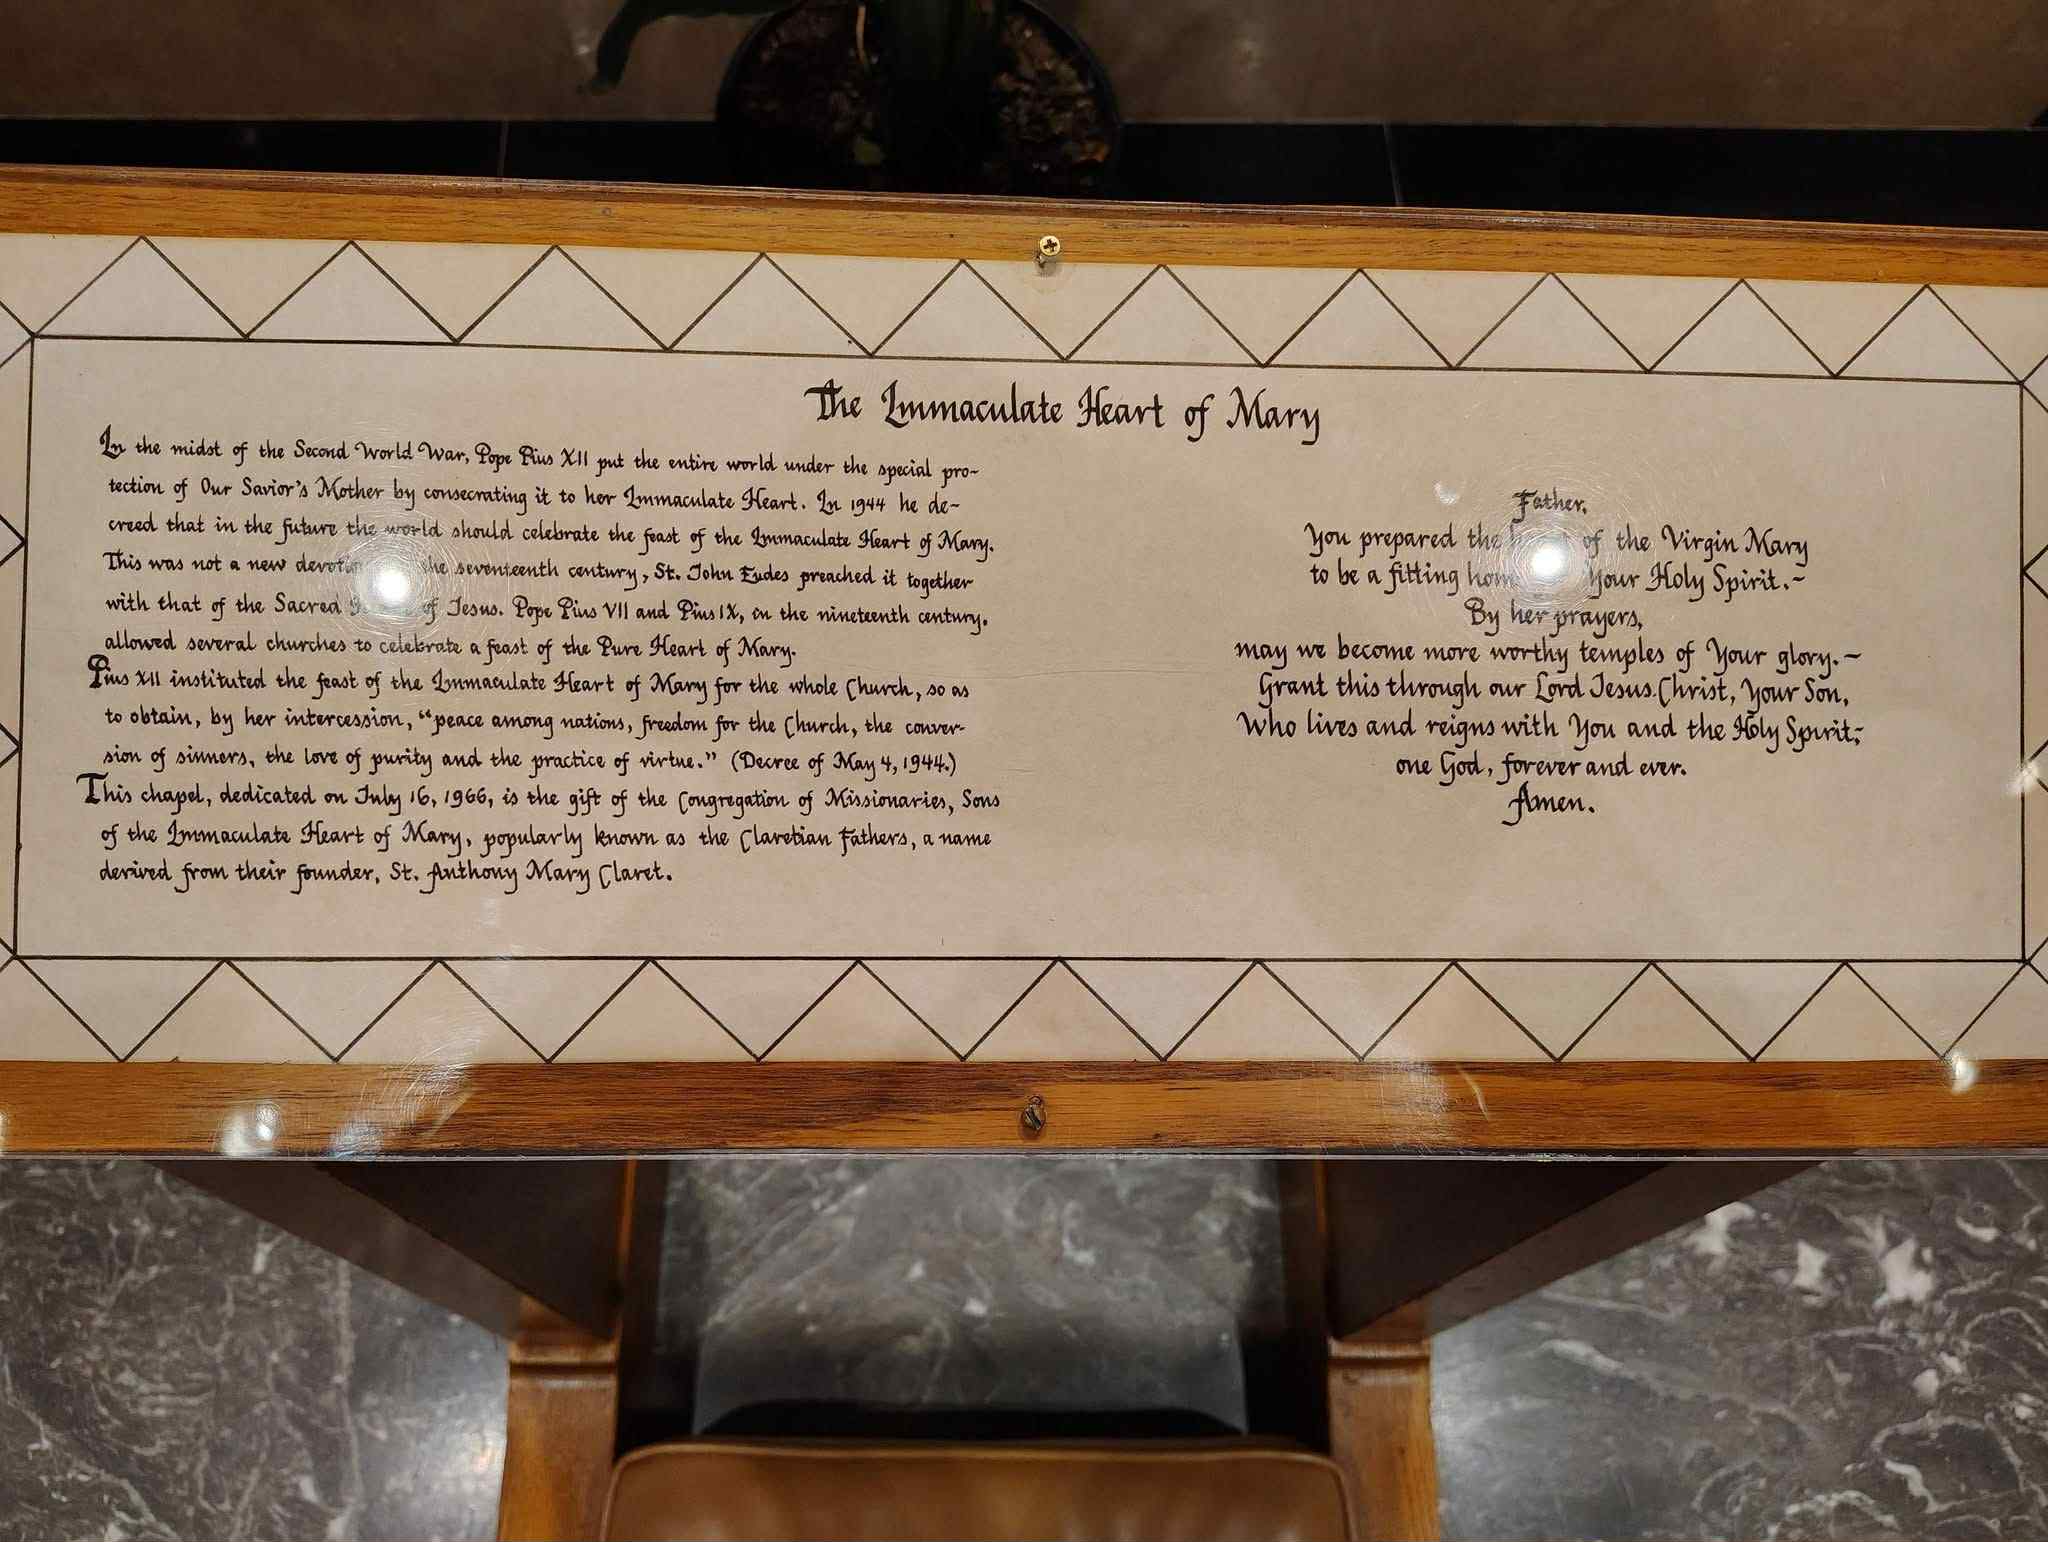 The Immaculate Heart of Mary
In the midst of the Second World War, Pope Pius XII put the entire world under the special pro-
tection of Our Savior's Mother by consecrating it to her Immaculate Heart. In 1944 he de-
creed that in the future the world should celebrate the feast of the Immaculate Heart of Mary.
This was not a new the seventeenth century, St. John Eudes preached it together
with that of the Sacred of Jesus. Pope Pius VII and Pius IX, in the nineteenth century,
allowed several churches to celebrate a feast of the Pure Heart of Mary.
Pius XII instituted the feast of the Immaculate Heart of Mary for the whole Church, so as
to obtain, by her intercession, "peace among nations, freedom for the Church, the conver-
sion of sinners, the love of purity and the practice of virtue." (Decree of May 4, 1944.)
This chapel, dedicated on July 16, 1966, is the gift of the Congregation of Missionaries, Sons
of the Immaculate Heart of Mary, popularly known as the Claretian Fathers, a name
derived from their founder, St. Anthony Mary Claret.
Father,
You prepared the of the Virgin Mary
to be a fitting Your Holy Spirit.~
By her prayers,
may we become more worthy temples of Your glory.~
Grant this through our Lord Jesus Christ, Your Son,
Who lives and reigns with You and the Holy Spirit;
one God, forever and ever.
Amen.